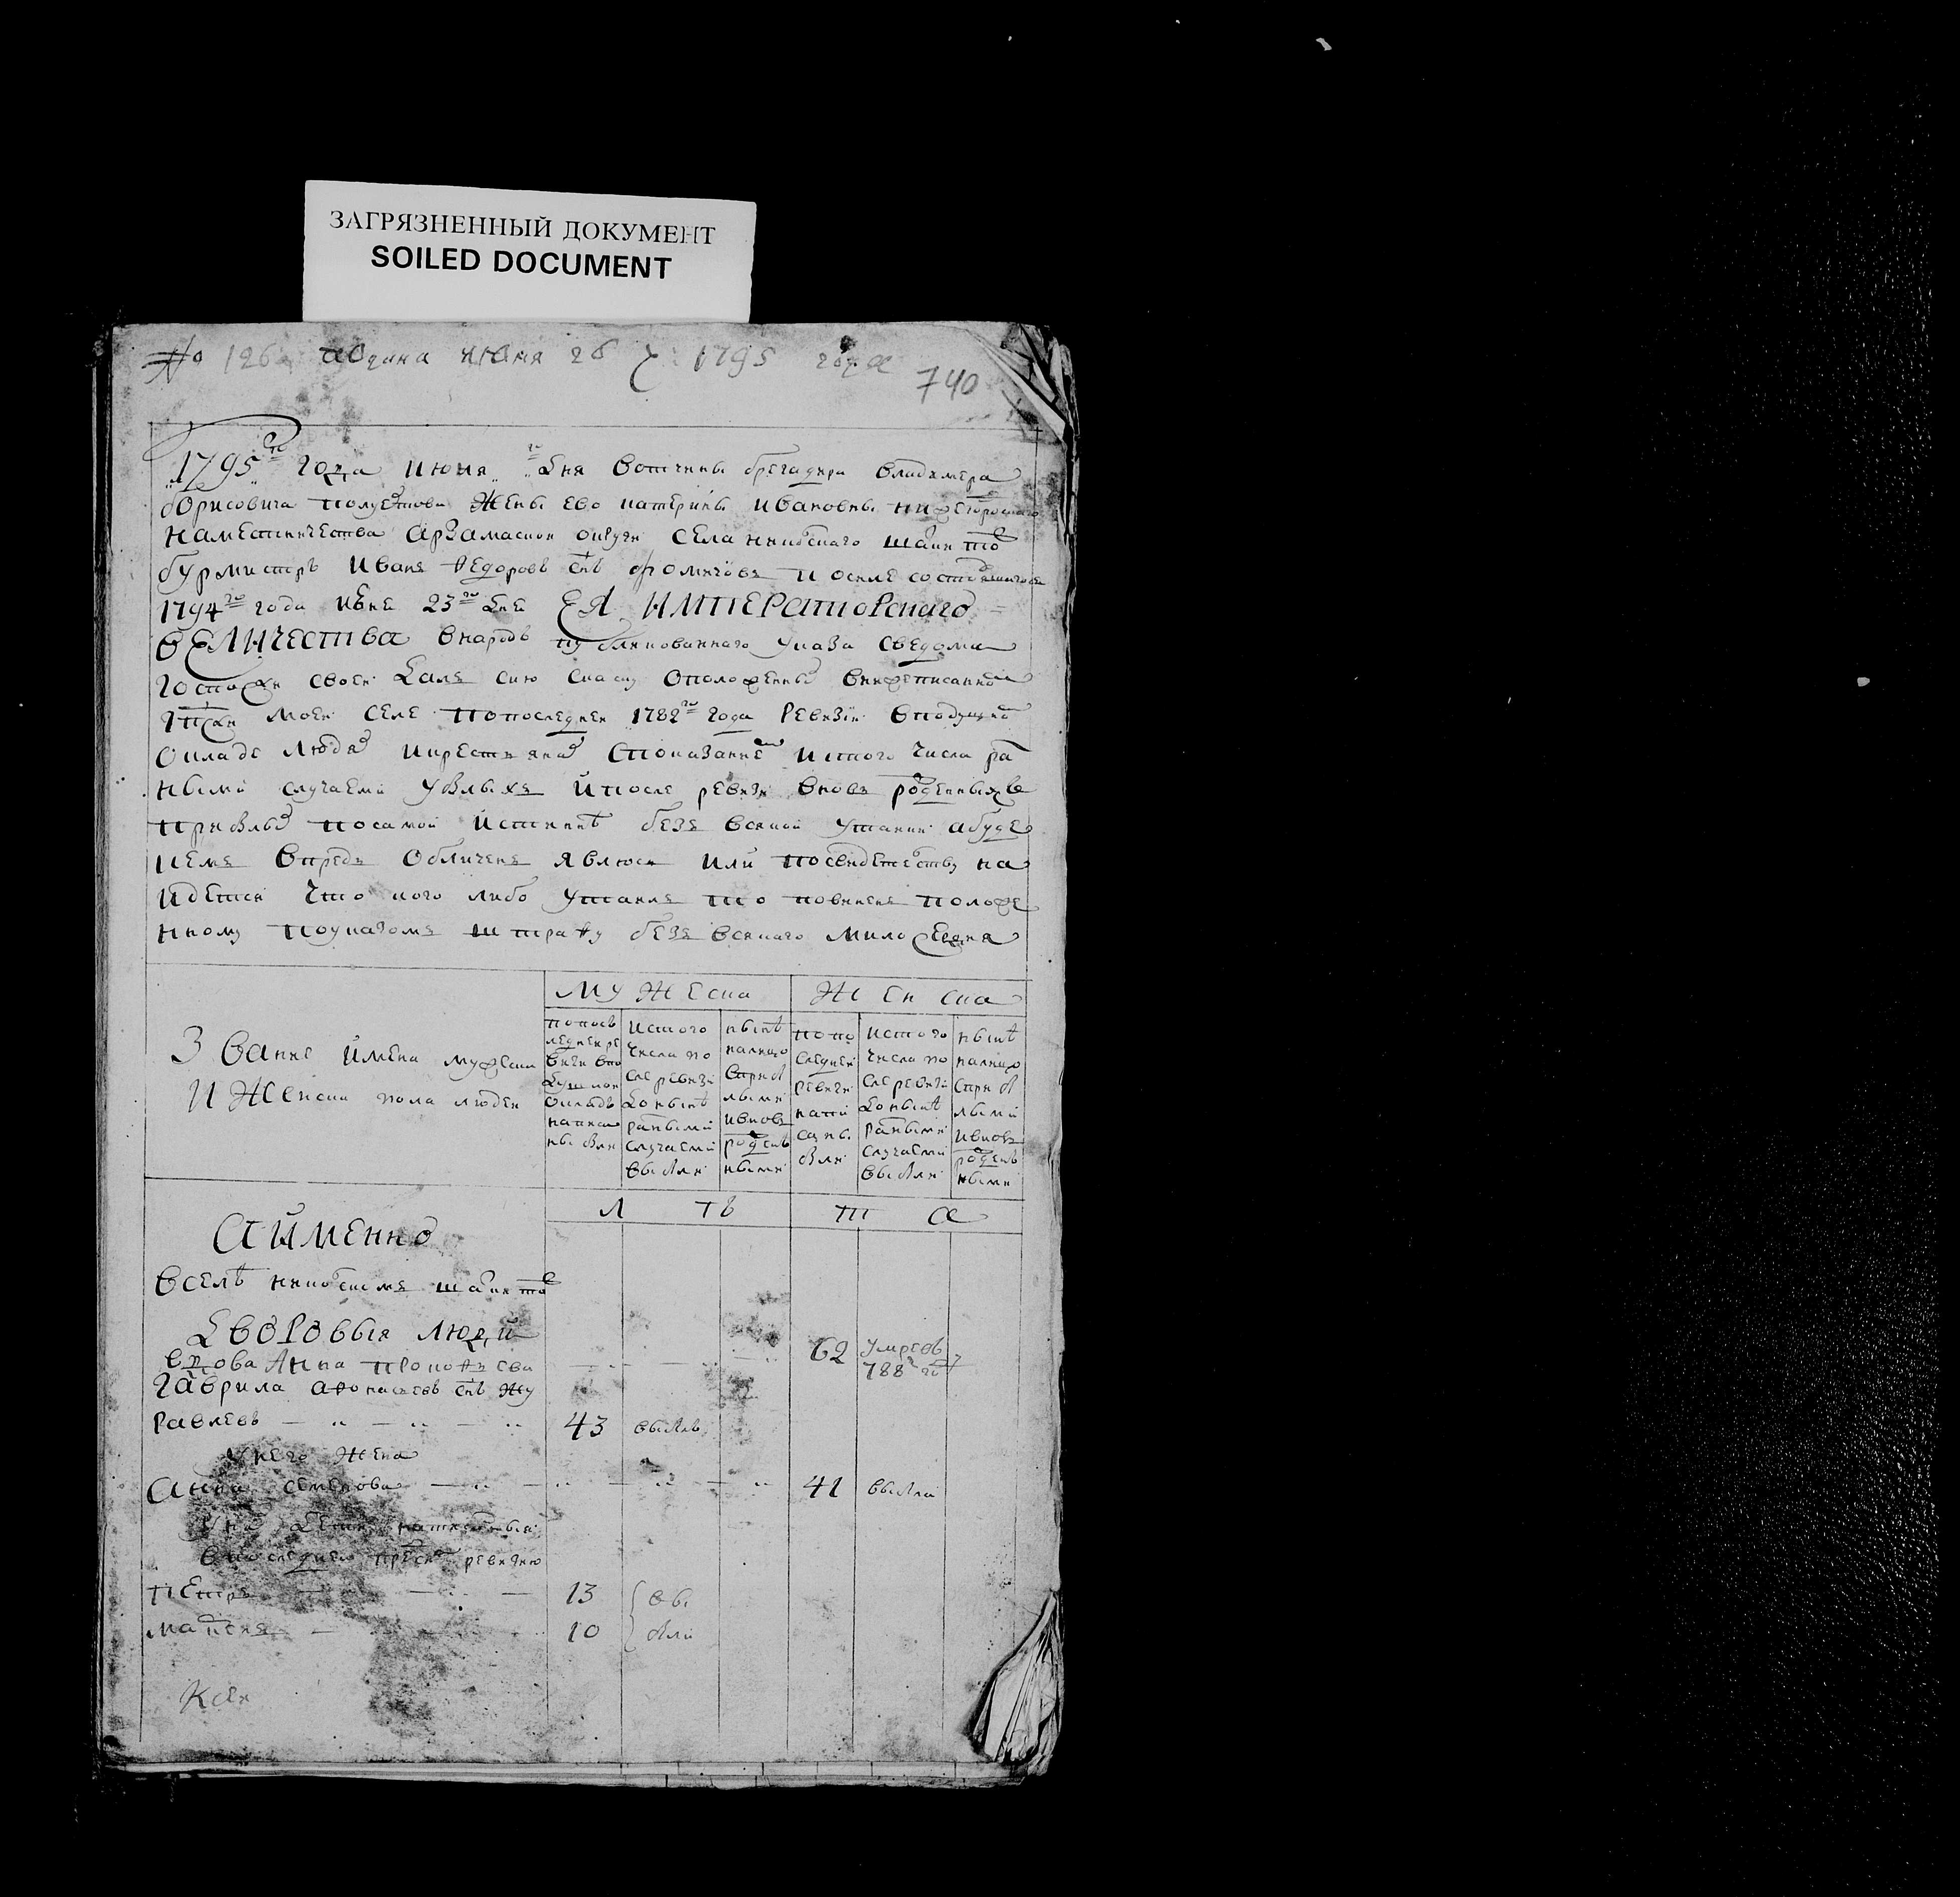 ЗАГРЯЗНЕННЫЙ ДОКУМЕНТ
SOILED DOCUMENT
№ 126 подана июня 26 ч 1795 года
740
1795го года июня " го дня вотчины брегадира владимера
борисовича полуехтова жены ево катерины ивановны нижегороцкаго
наместничества арзамаской округи села никольскаго шатки тож
бурмистръ иванъ федоровъ снъ фомичовъ
1794го года июне 23го дне ЕЯ ИМПЕРАТОРСкаго
ВЕЛИЧЕСТВА внародъ публикованнаго указа сведома
госпожи своеи далъ сию скаску оположенных внижеписанном
гпжи моеи селе попоследнеи 1782го года ревизии вподушно
окладе людях икрестьянах спокозанием истого числа ра
ными случаеми убылыхъ ипосле ревизи вновь рожденныхъ
прибылых посамои истинне безъ всякои утаики абуде
кемъ впредь обличенъ явлюся или посвидетельству на
идется что кого либо утаилъ то повиненъ положе
нному поуказомъ штрафу безъ всякаго милосердия
МУЖЕска
ЖЕНска
Звание имена мужеска
И Женска пола людеи
попосъ
ледиеи ре
визи впо
душном
окладъ
написа
ны были
истого
числа по
сле ревизи
доныне
разными
случаеми
выбыли
ныне
налицо
сприб
лыми
ивновь
рожден
ными
попо
следнеи
ревизи
напи
саны
были
истого
числа по
сле ревизи
доныне
разными
случаеми
выбыли
ныне
налицо
сприб
лыми
ивновь
рожден
ными
Л Ѣ Т А
АИМЕННО
Вселѣ никольскомъ шатки тож
ДВОРОВЫЯ ЛЮДИ
вдова Анна прокофьева 62 умре въ
788 го
Гаврила афонасьевъ снъ жу
равлевъ 43 выбылъ
Унего жена
Анна семенова 41 выбыла
Уних дети написанныя
впоследнею пред сим ревизию
петръ 13 вы
максимъ 10 были